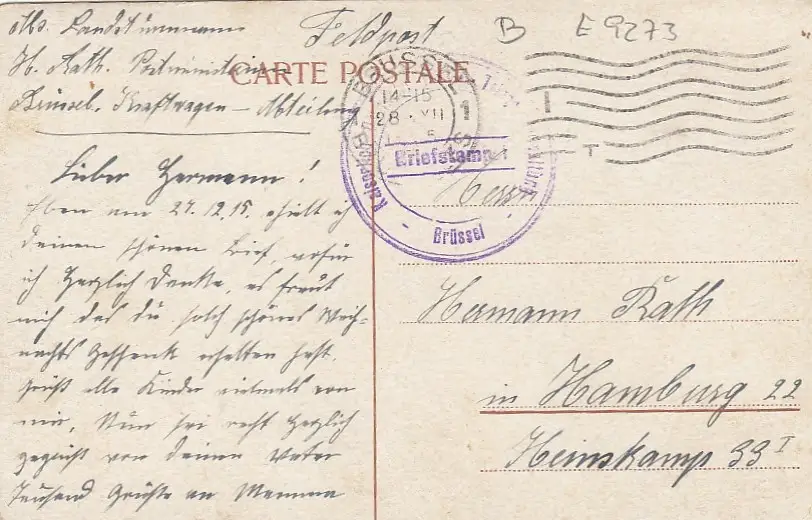 Abs. Landsturmmann
H. Rath.
Brüssel. Kraftwagen-Abteilung
Feldpost
B E 9273
CARTE POSTALE
14-15
28 XII
1
1
T
Briefstempel
Brüssel
Lieber Hermann!
Eben am 27.12.15. erhielt ich
deinen schönen Brief, wofür
ich herzlich danke, es freut
mich das du solch schönes Weih-
nachts Geschenk erhalten hast.
Grüß alle Kinder vielmals von
mir. Nun sei recht herzlich
gegrüßt von deinem Vater
Tausend Grüße an Mamma
Herrn
Hermann Rath
in Hamburg 22
Heinskamp 33 I